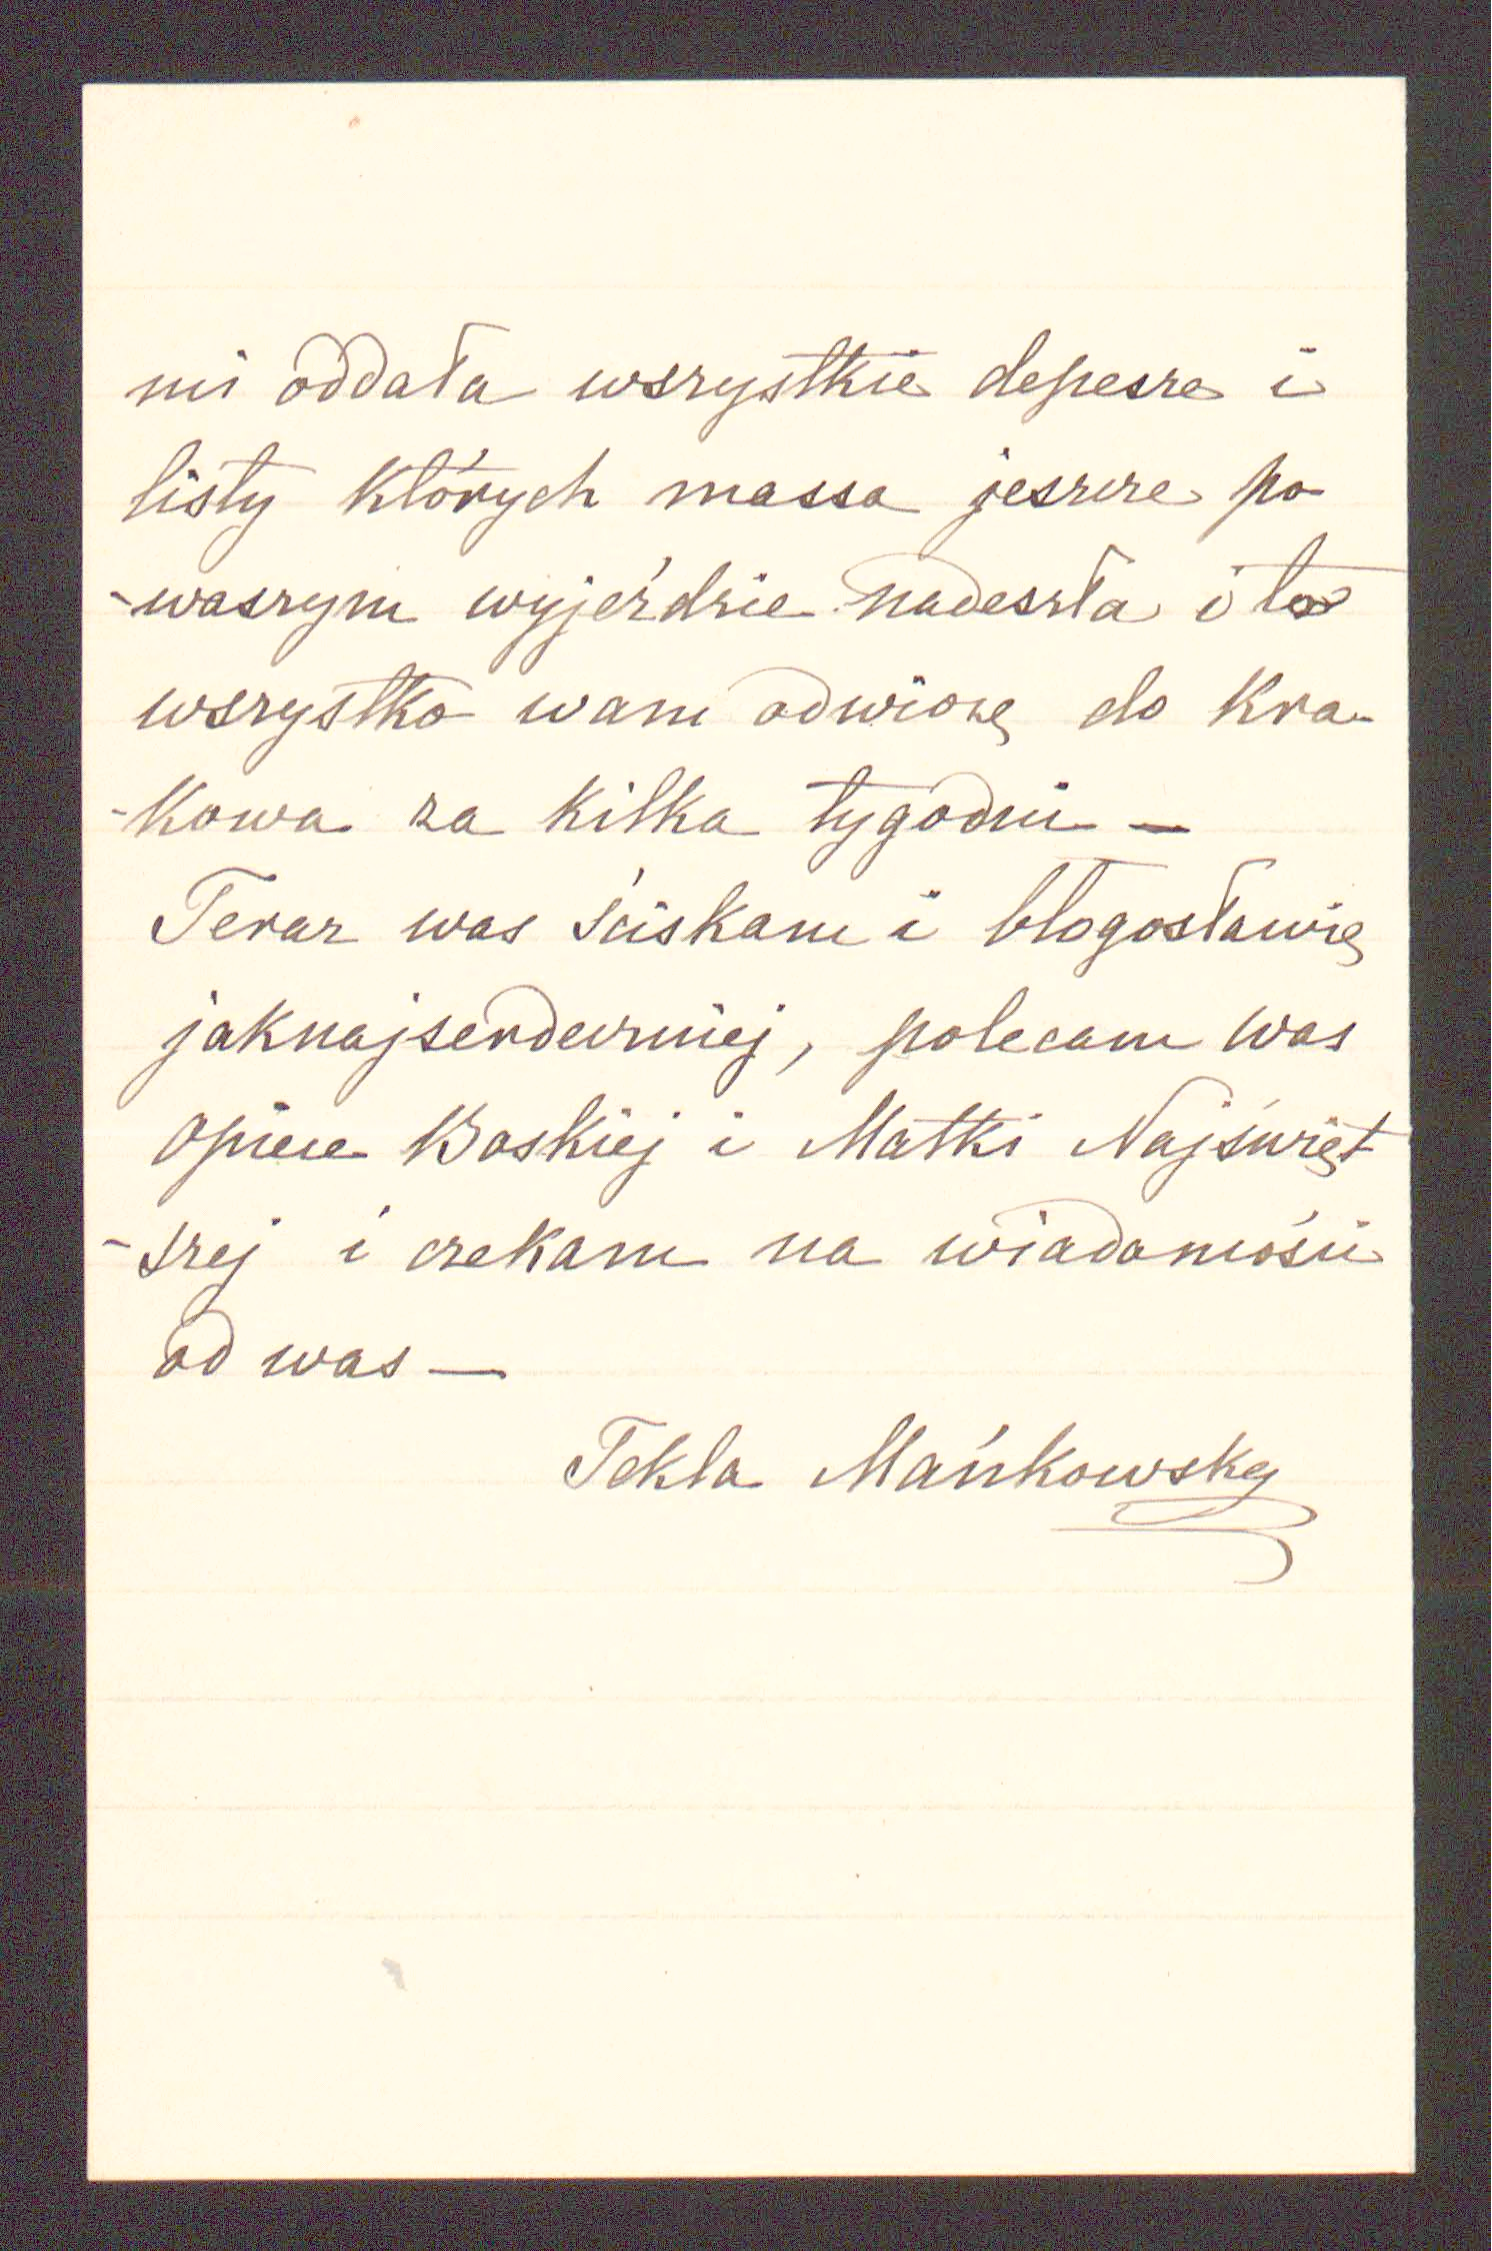 mi oddała wszystkie depesze i
listy których massa jeszcze po
-waszym wyjeździe nadeszła i to
wszystko wam odwiozę do Kra-
-kowa za kilka tygodni —
Teraz was ściskam i błogosławię
jaknajserdeczniej, polecam was
opiece Boskiej i Matki Najświęt
-szej i czekam na wiadomości
od was —
Tekla Mańkowska